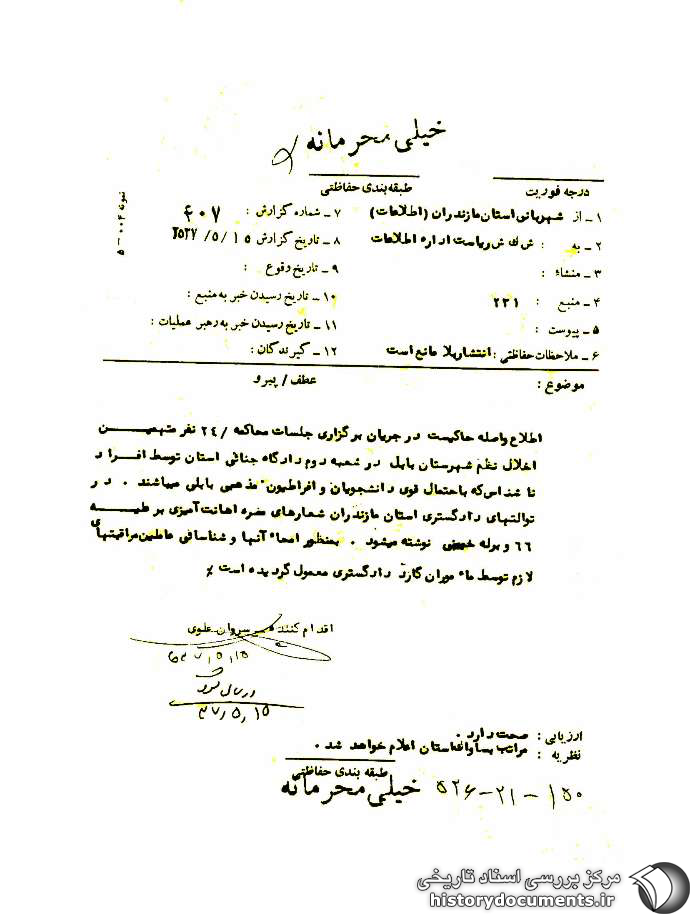 خیلی محرمانه
درجه فوریت
طبقه بندی حفاظتی
نمونه ۰۰۴ - ۵
۱ - از شهربانی استان مازندران (اطلاعات)
۷ - شماره گزارش : ۶۰۷
۲ - به : ش ک ش ریاست اداره اطلاعات
۸ - تاریخ گزارش ۲۵۳۷/۵/۱۵
۳ - منشاء :
۹ - تاریخ وقوع :
۴ - منبع : ۲۳۱
۱۰ - تاریخ رسیدن خبر به منبع :
۵ - پیوست :
۱۱ - تاریخ رسیدن خبر به رهبر عملیات :
۶ - ملاحظات حفاظتی : انتشار بلا مانع است
۱۲ - گیرندگان :
موضوع :
عطف / پیرو
اطلاع واصله حاکیست در جریان برگزاری جلسات محاکمه /۲۴ نفر متهمین
اخلال نظم شهرستان بابل در شعبه دوم دادگاه جنائی استان توسط افراد
ناشناس که باحتمال قوی دانشجویان و افراطیون مذهبی بابلی میباشند . در
توالتهای دادگستری استان مازندران شعارهای مضره اهانت آمیزی بر علیه
۶۶ و برله خمینی نوشته میشود . بمنظور امحاء آنها و شناسائی عاملین مراقبتهای
لازم توسط مامورین گارد دادگستری معمول گردیده است
اقدام کننده سروان علوی
۳۷/۵/۱۵
ارسال گردد
۳۷/۵/۱۵
ارزیابی : صحت دارد .
نظریه : مراتب بساواک استان اعلام خواهد شد .
طبقه بندی حفاظتی
خیلی محرمانه
۵۲۶-۲۱-۱۵۰
مرکز بررسی اسناد تاریخی
historydocuments.ir